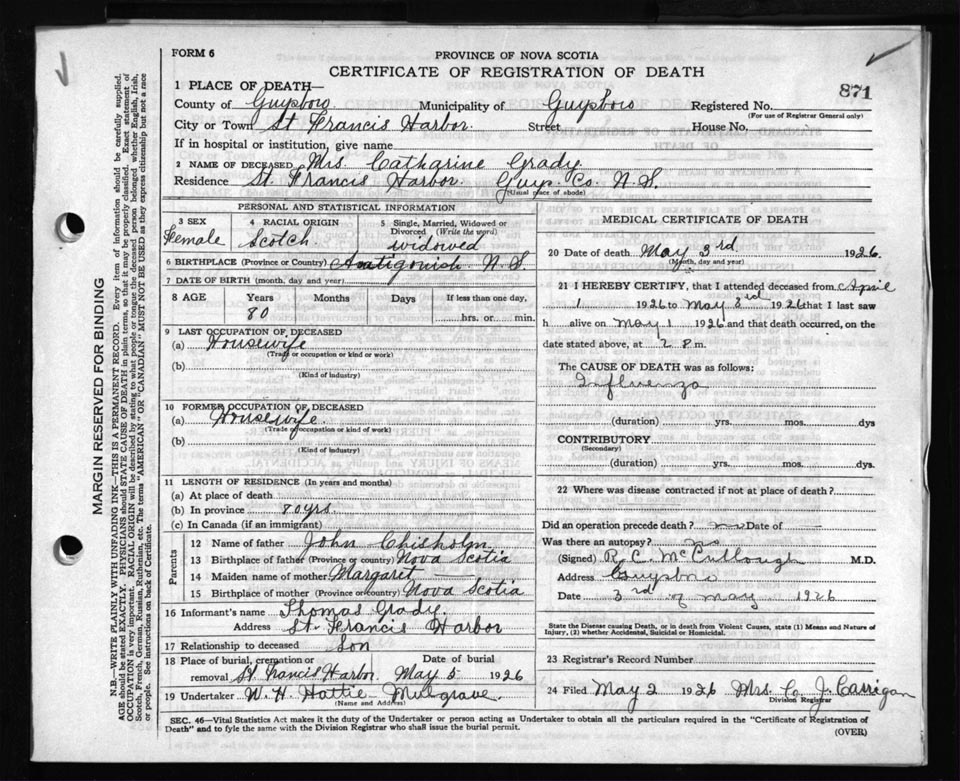 FORM 6
PROVINCE OF NOVA SCOTIA
CERTIFICATE OF REGISTRATION OF DEATH
871
1 PLACE OF DEATH—
County of Guysboro Municipality of Guysboro Registered No.
(For use of Registrar General only)
City or Town St Francis Harbor. Street House No.
If in hospital or institution, give name
2 NAME OF DECEASED Mrs. Catharine Grady.
Residence St. Francis Harbor. Guys. Co. N.S.
(Usual place of abode)
PERSONAL AND STATISTICAL INFORMATION
3 SEX
Female
4 RACIAL ORIGIN
Scotch.
5 Single, Married, Widowed or
Divorced (Write the word)
widowed
6 BIRTHPLACE (Province or Country) Antigonish N.S.
7 DATE OF BIRTH (month, day and year)
8 AGE Years Months Days If less than one day,
80 hrs. or min.
9 LAST OCCUPATION OF DECEASED
(a) Housewife
(Trade or occupation or kind or work)
(b)
(Kind of industry)
10 FORMER OCCUPATION OF DECEASED
(a) Housewife.
(Trade or occupation or kind or work)
(b)
(Kind of industry)
11 LENGTH OF RESIDENCE (In years and months)
(a) At place of death
(b) In province 80 yrs.
(c) In Canada (if an immigrant)
Parents
12 Name of father John Chisholm
13 Birthplace of father (Province or country) Nova Scotia
14 Maiden name of mother Margaret —
15 Birthplace of mother (Province or country) Nova Scotia
16 Informant's name Thomas Grady.
Address St. Francis Harbor
17 Relationship to deceased Son
18 Place of burial, cremation or Date of burial
removal St Francis Harbor. May 5 1926
19 Undertaker W. H. Hattie Mulgrave.
(Name and Address)
MEDICAL CERTIFICATE OF DEATH
20 Date of death May 3rd 1926.
(Month, day and year)
21 I HEREBY CERTIFY, that I attended deceased from April
1 1926 to May 3rd 1926 that I last saw
h alive on May 1 1926 and that death occurred, on the
date stated above, at 2 P.m.
The CAUSE OF DEATH was as follows:
Influenza
(duration) yrs. mos. dys
CONTRIBUTORY
(Secondary)
(duration) yrs. mos. dys.
22 Where was disease contracted if not at place of death?
Did an operation precede death? no Date of
Was there an autopsy? no
(Signed) R. C. McCullough M.D.
Address Guysboro
Date 3rd of May 1926
State the Disease causing Death, or in death from Violent Causes, state (1) Means and Nature of
Injury, (2) whether Accidental, Suicidal or Homicidal.
23 Registrar's Record Number
24 Filed May 2 1926 Mrs. C. J. Carrigan
Division Registrar
SEC. 46—Vital Statistics Act makes it the duty of the Undertaker or person acting as Undertaker to obtain all the particulars required in the "Certificate of Registration of
Death" and to fyle the same with the Division Registrar who shall issue the burial permit.
(OVER)
MARGIN RESERVED FOR BINDING
N.B.—WRITE PLAINLY WITH UNFADING INK—THIS IS A PERMANENT RECORD. Every item of information should be carefully supplied.
AGE should be stated EXACTLY. PHYSICIANS should STATE CAUSE OF DEATH in plain terms, so that it may be properly classified. Exact statement of
OCCUPATION is very important. RACIAL ORIGIN will be described by stating to what people or tongue the deceased person belonged whether English, Irish,
Scotch, French, German, Russian, Ruthenian, etc. The terms "AMERICAN" OR "CANADIAN" MUST NOT BE USED as they express citizenship but not a race
or people. See instructions on back of Certificate.